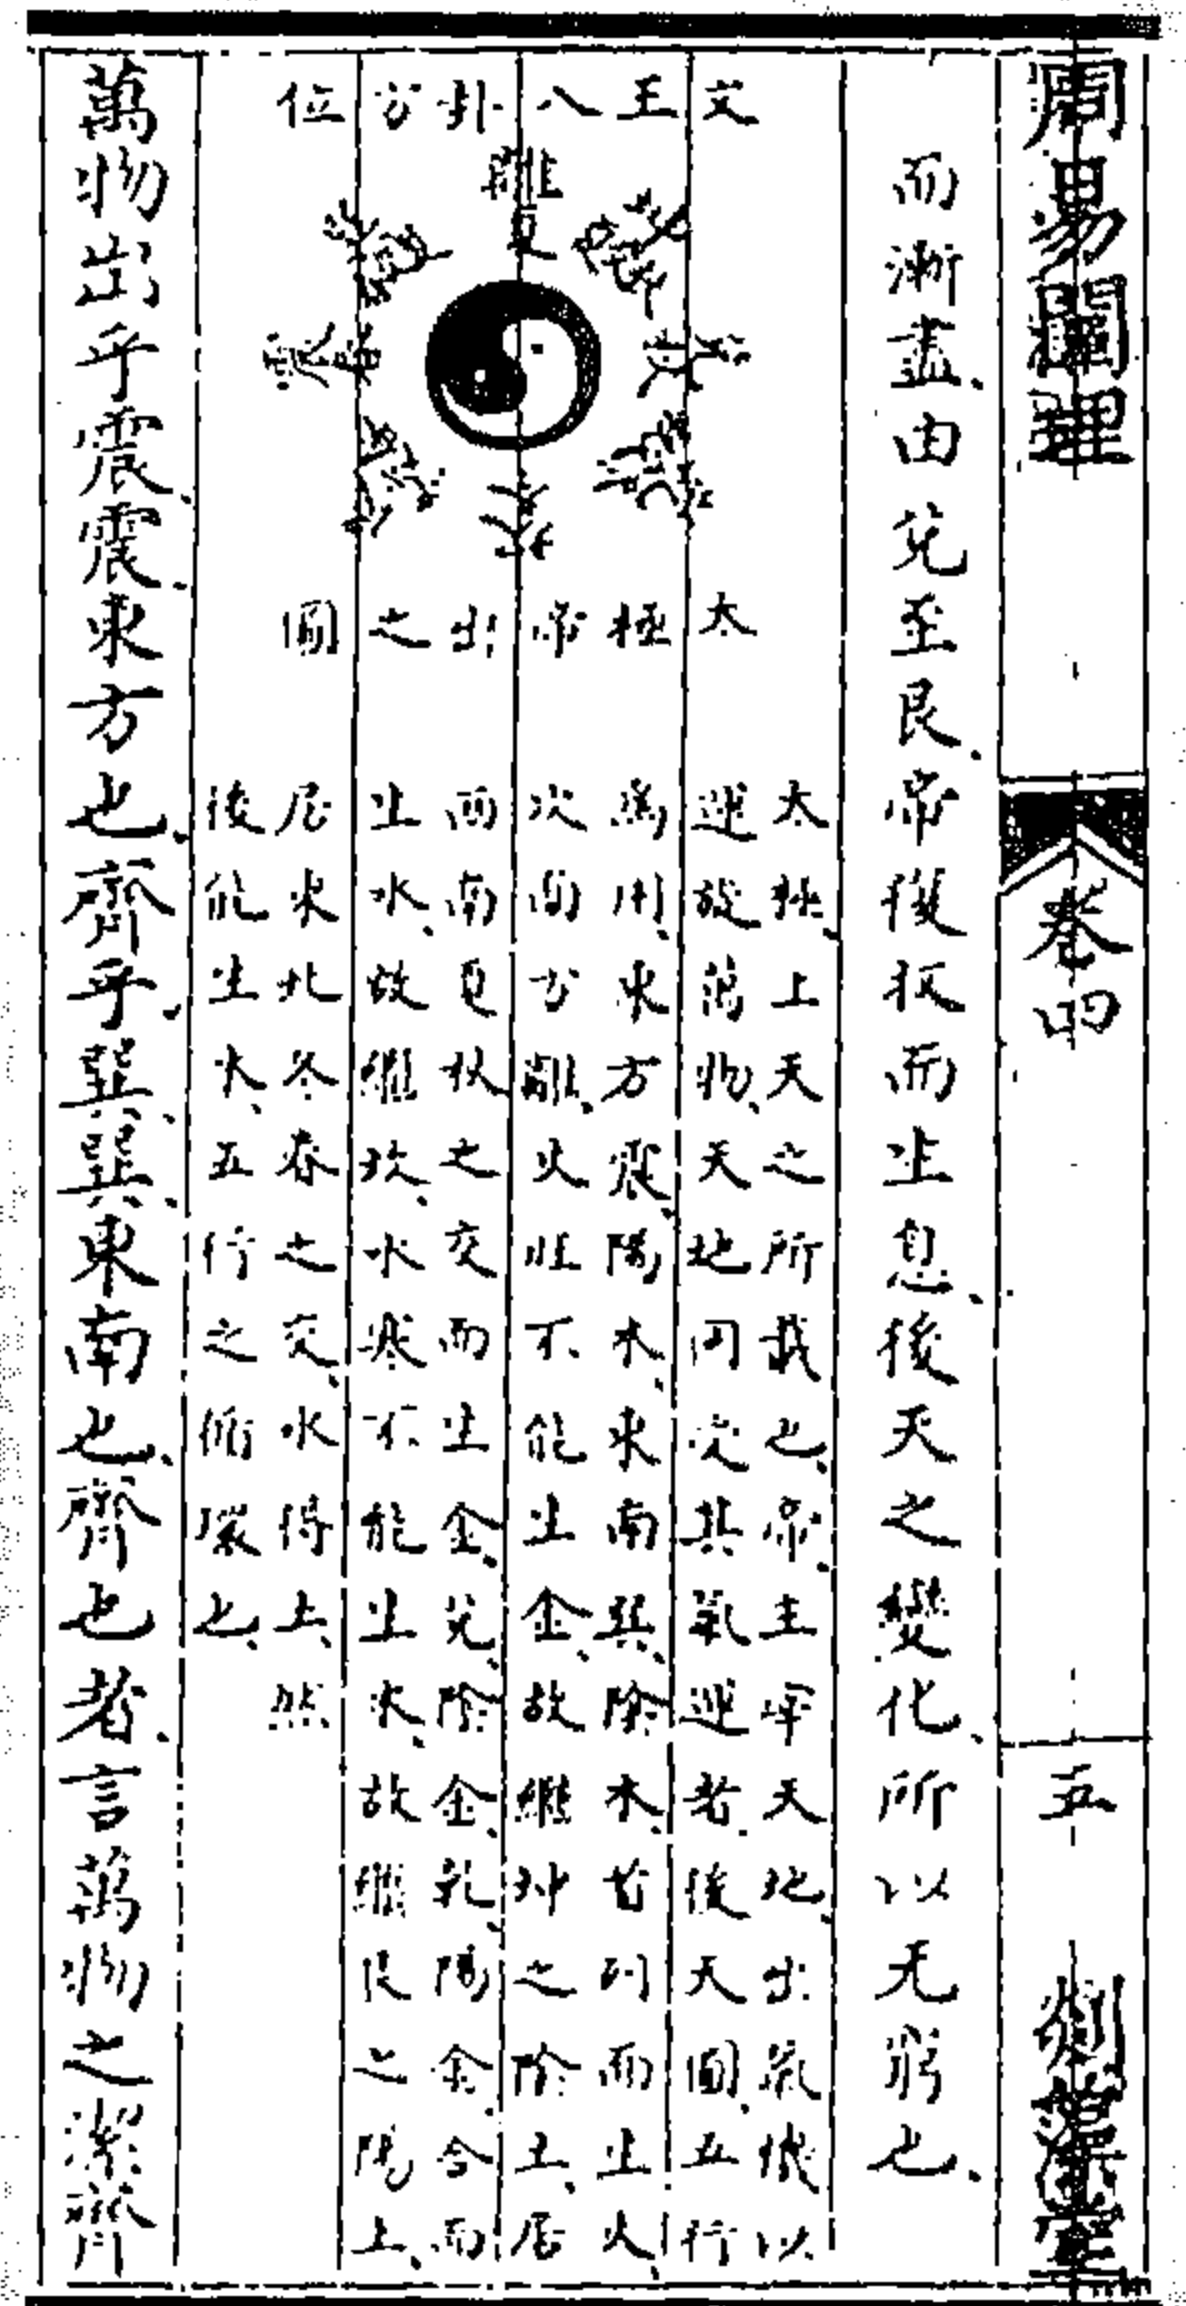 周易闡理
卷四
五
而漸盡、由兌至艮、帝復扳而生息、後天之變化、所以无窮也、
文王八卦方位
離夏
太極帝出之圖
太極、上天之所載也、帝、主宰天地、出氣機以
運旋萬物、天地同受其氣運者、後天圖、五行
為用、東方震、陽木、東南巽、陰木、首列而生火、
次南方離、火旺不能生金、故繼坤之陰土、居
西南夏秋之交而生金、兌、陰金、乾、陽金、合而
生水、故繼坎、水寒不能生木、故繼艮之陽土、
居東北冬春之交、水得土、然
後能生木、五行之循環也、
萬物出乎震、震、東方也、齊乎、巽、巽、東南也、齊也者、言萬物之潔齊